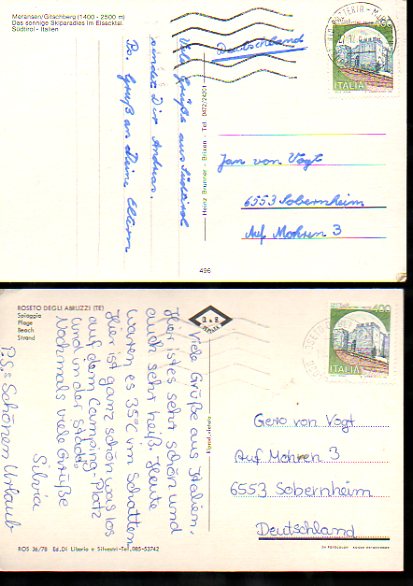 Meransen/Gitschberg (1400 - 2500 m)
Das sonnige Skiparadies im Eisacktal
Südtirol - Italien
Viele Grüße aus Südtirol
sendet Dir Andreas.
Bs. Gruß an Deine Eltern
Deutschland
ITALIA
Heinz Brunner - Brixen - Tel. 0472/24201
Jan von Vogt
6553 Sobernheim
Auf Mohren 3
496
ROSETO DEGLI ABRUZZI (TE)
Spiaggia
Plage
Beach
Strand
Viele Grüße aus Italien.
Hier ist es sehr schön und
auch sehr heiß. Heute
waren es 35°C im Schatten.
Hier ist ganz schön was los
auf dem Camping Platz
und in der Stadt.
Nochmals viele Grüße
Silvia
P.S: Schönen Urlaub
400
ITALIA
Gero von Vogt
Auf Mohren 3
6553 Sobernheim
Deutschland
ROS 36/78 Ed. Di Liberio e Silvestri - Tel. 085-53742